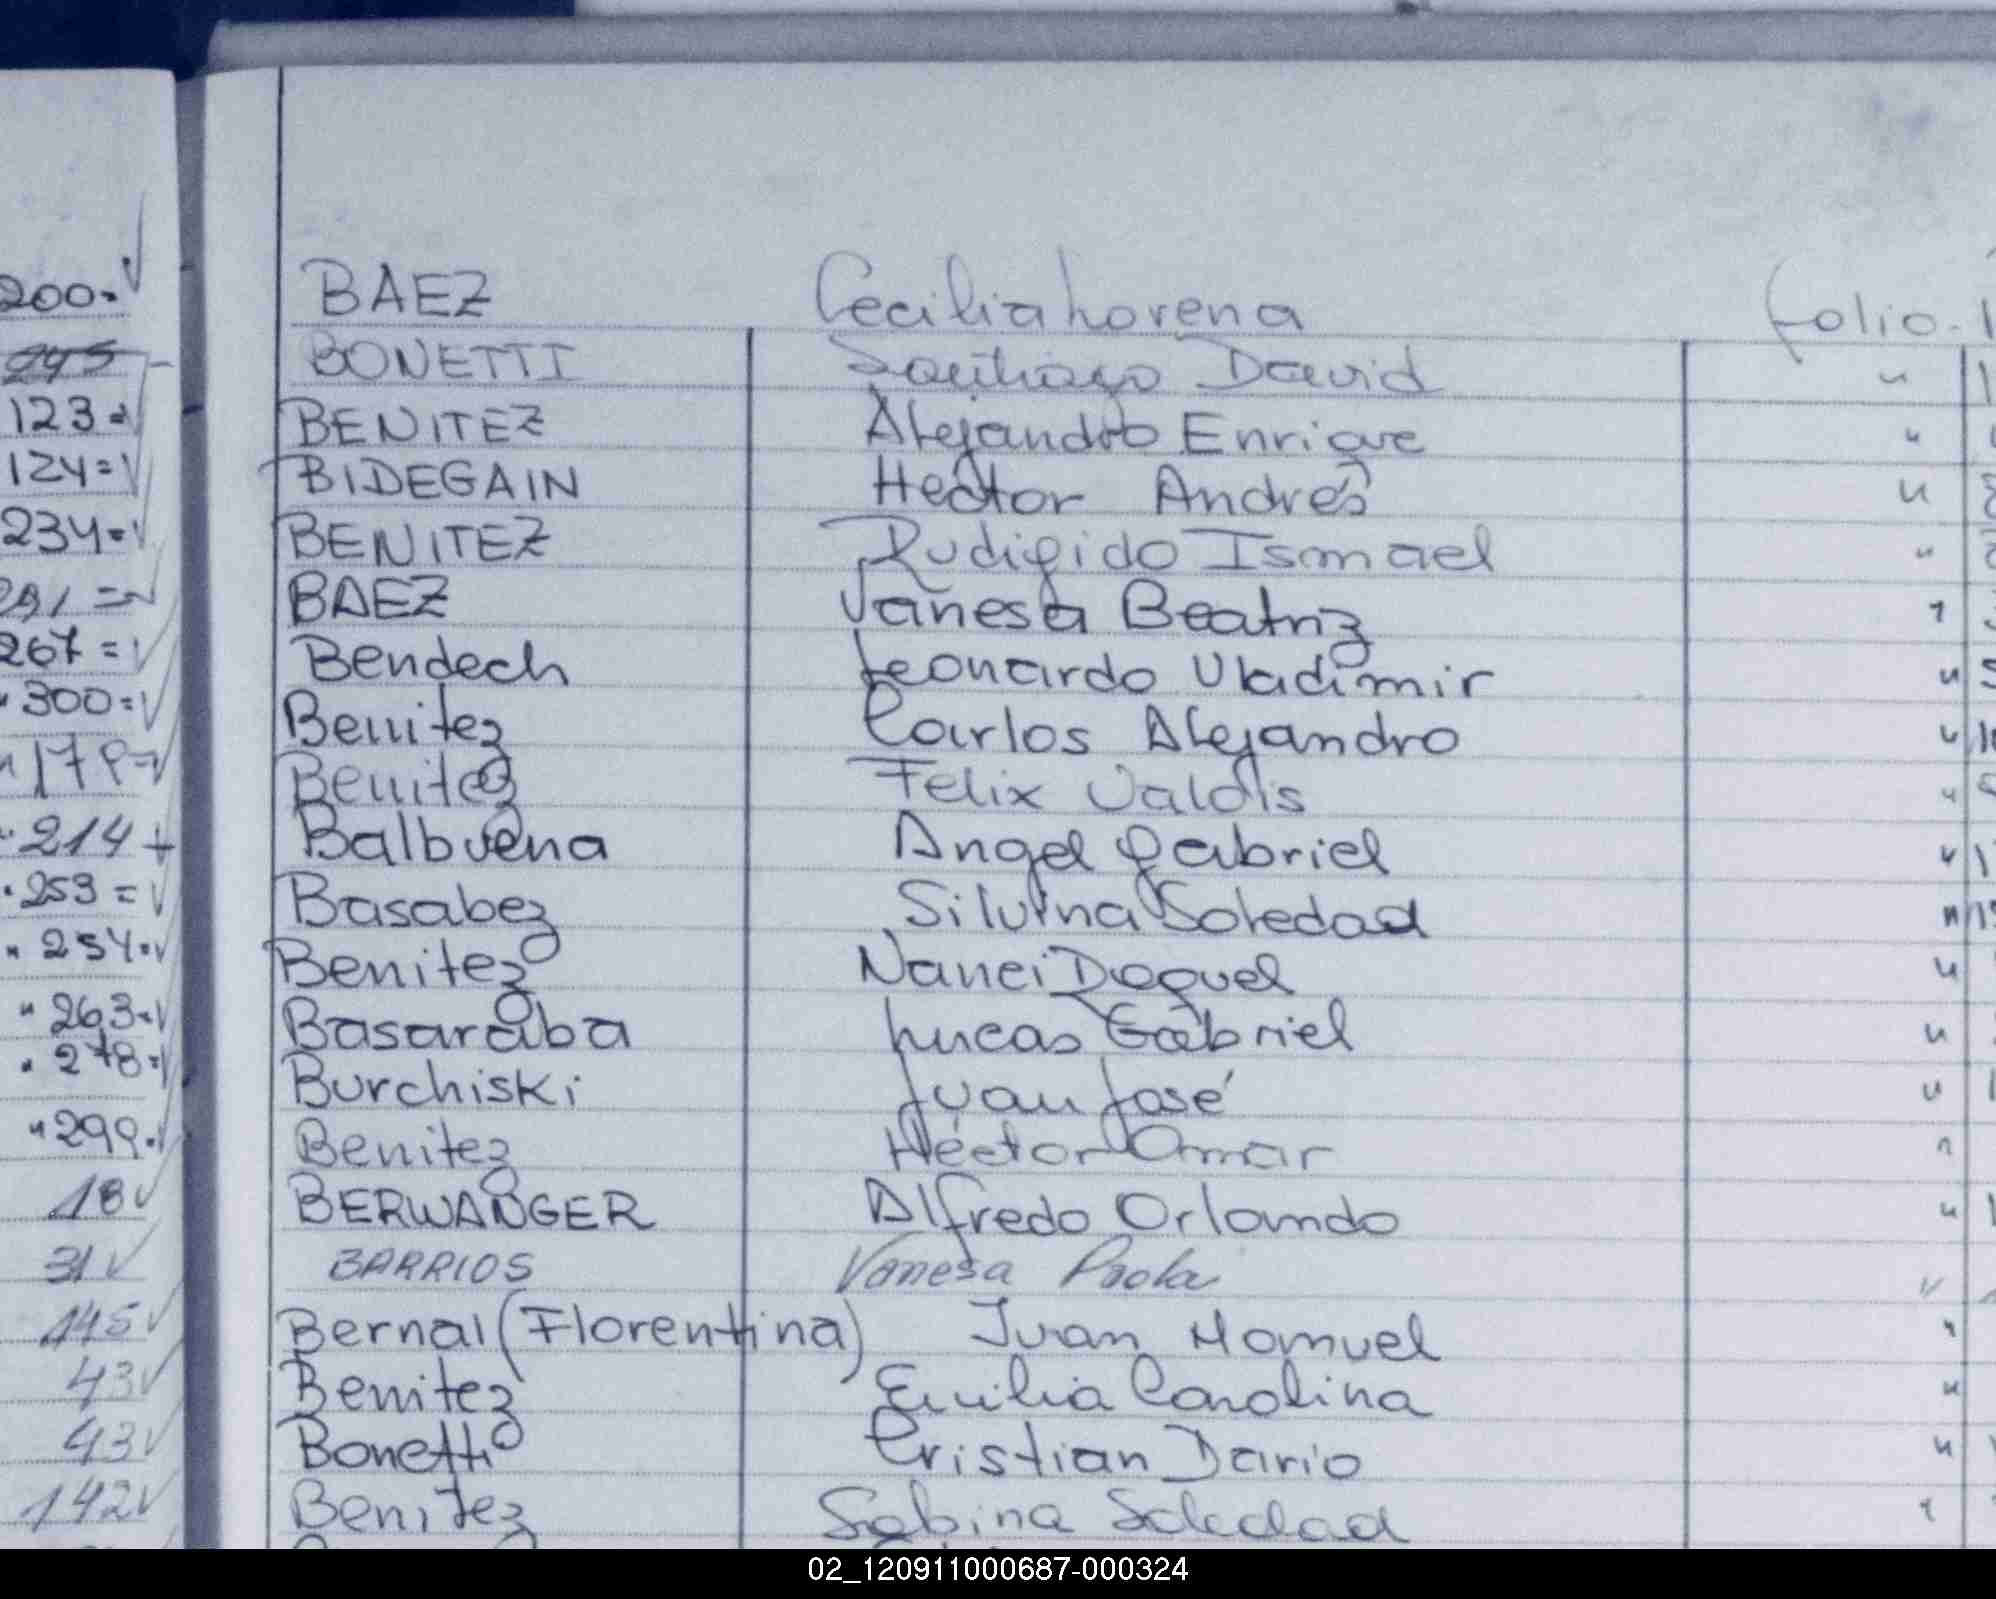 200=
245
123=
124=
234=
291=
267=
" 300=
" 178=
" 214
" 253=
" 254=
" 263=
" 278=
" 299=
18
31
145
43
43
142
BAEZ Cecilia Lorena folio. 1
BONETTI Santiago David "
BENITEZ Alejandro Enrique "
BIDEGAIN Hector Andrés "
BENITEZ Ismael "
BAEZ Vanesa Beatriz "
Bendech Leonardo Vladimir "
Benitez Carlos Alejandro "
Benitez Felix Valdis "
Balbuena Angel Gabriel "
Basabez Silvina Soledad "
Benitez Nanci "
Basaraba Lucas Gabriel "
Burchiski Juan José "
Benitez Héctor Omar "
BERWANGER Alfredo Orlando "
BARRIOS Vanesa Paola "
Bernal (Florentina) Juan Manuel "
Benitez Emilia Carolina "
Bonetti Cristian Dario "
Benitez Sabina Soledad "
02_120911000687-000324